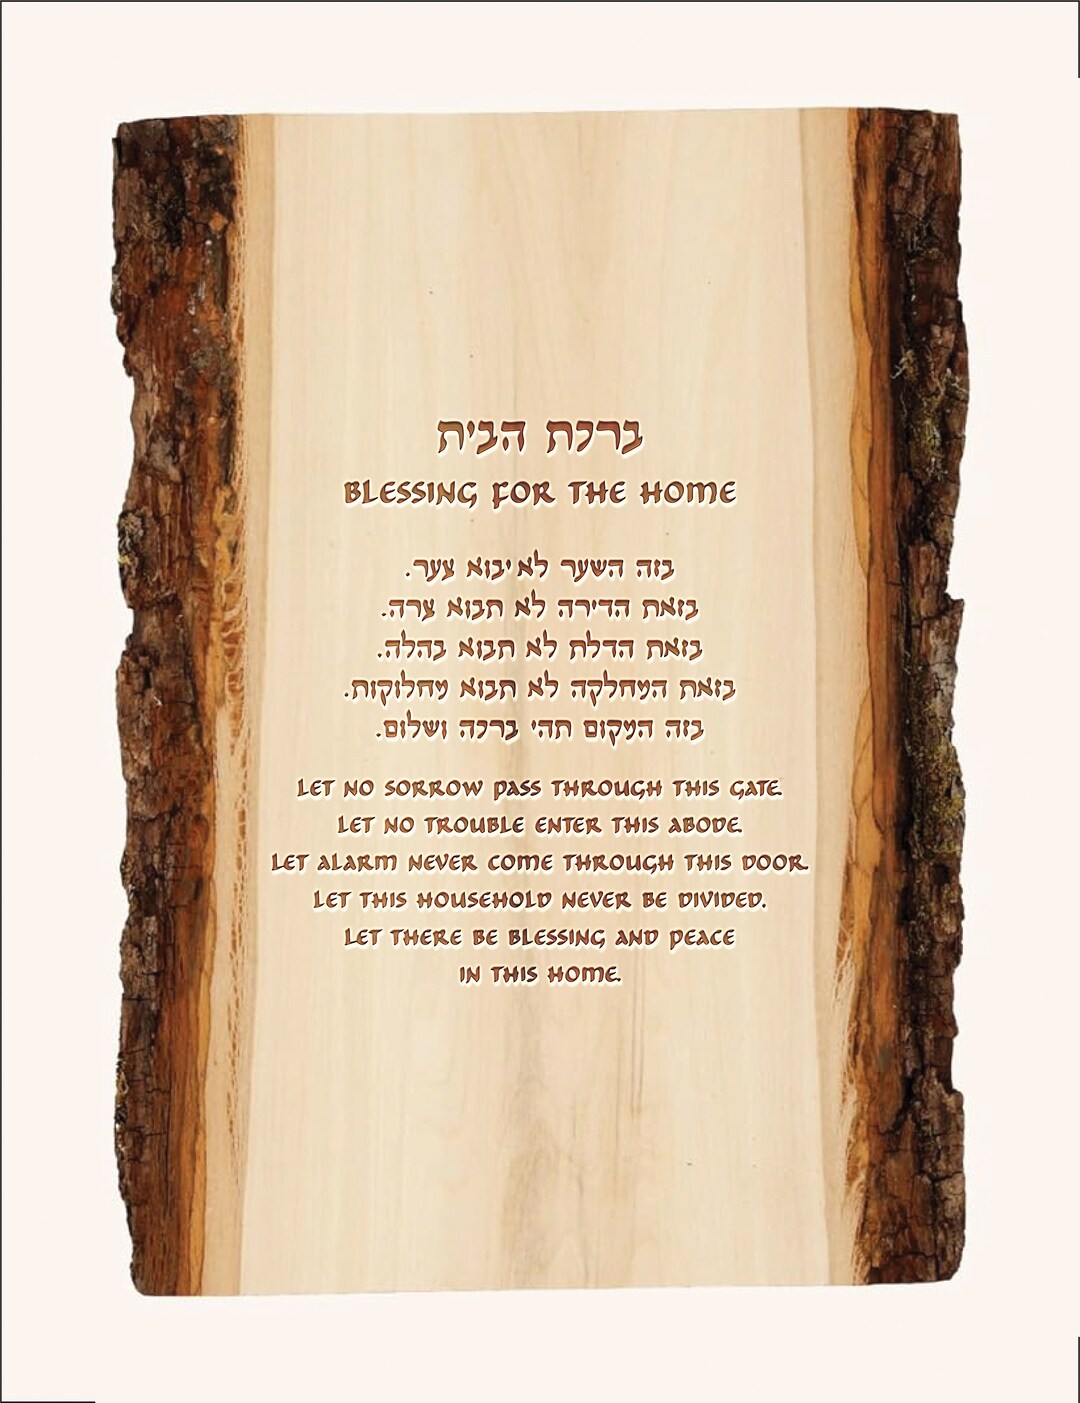 ברכת הבית
BLESSING FOR THE HOME
בזה השער לא יבוא צער.
בזאת הדירה לא תבוא צרה.
בזאת הדלת לא תבוא בהלה.
בזאת המחלקה לא תבוא מחלוקות.
בזה המקום תהי ברכה ושלום.
LET NO SORROW PASS THROUGH THIS GATE.
LET NO TROUBLE ENTER THIS ABODE.
LET ALARM NEVER COME THROUGH THIS DOOR.
LET THIS HOUSEHOLD NEVER BE DIVIDED.
LET THERE BE BLESSING AND PEACE
IN THIS HOME.